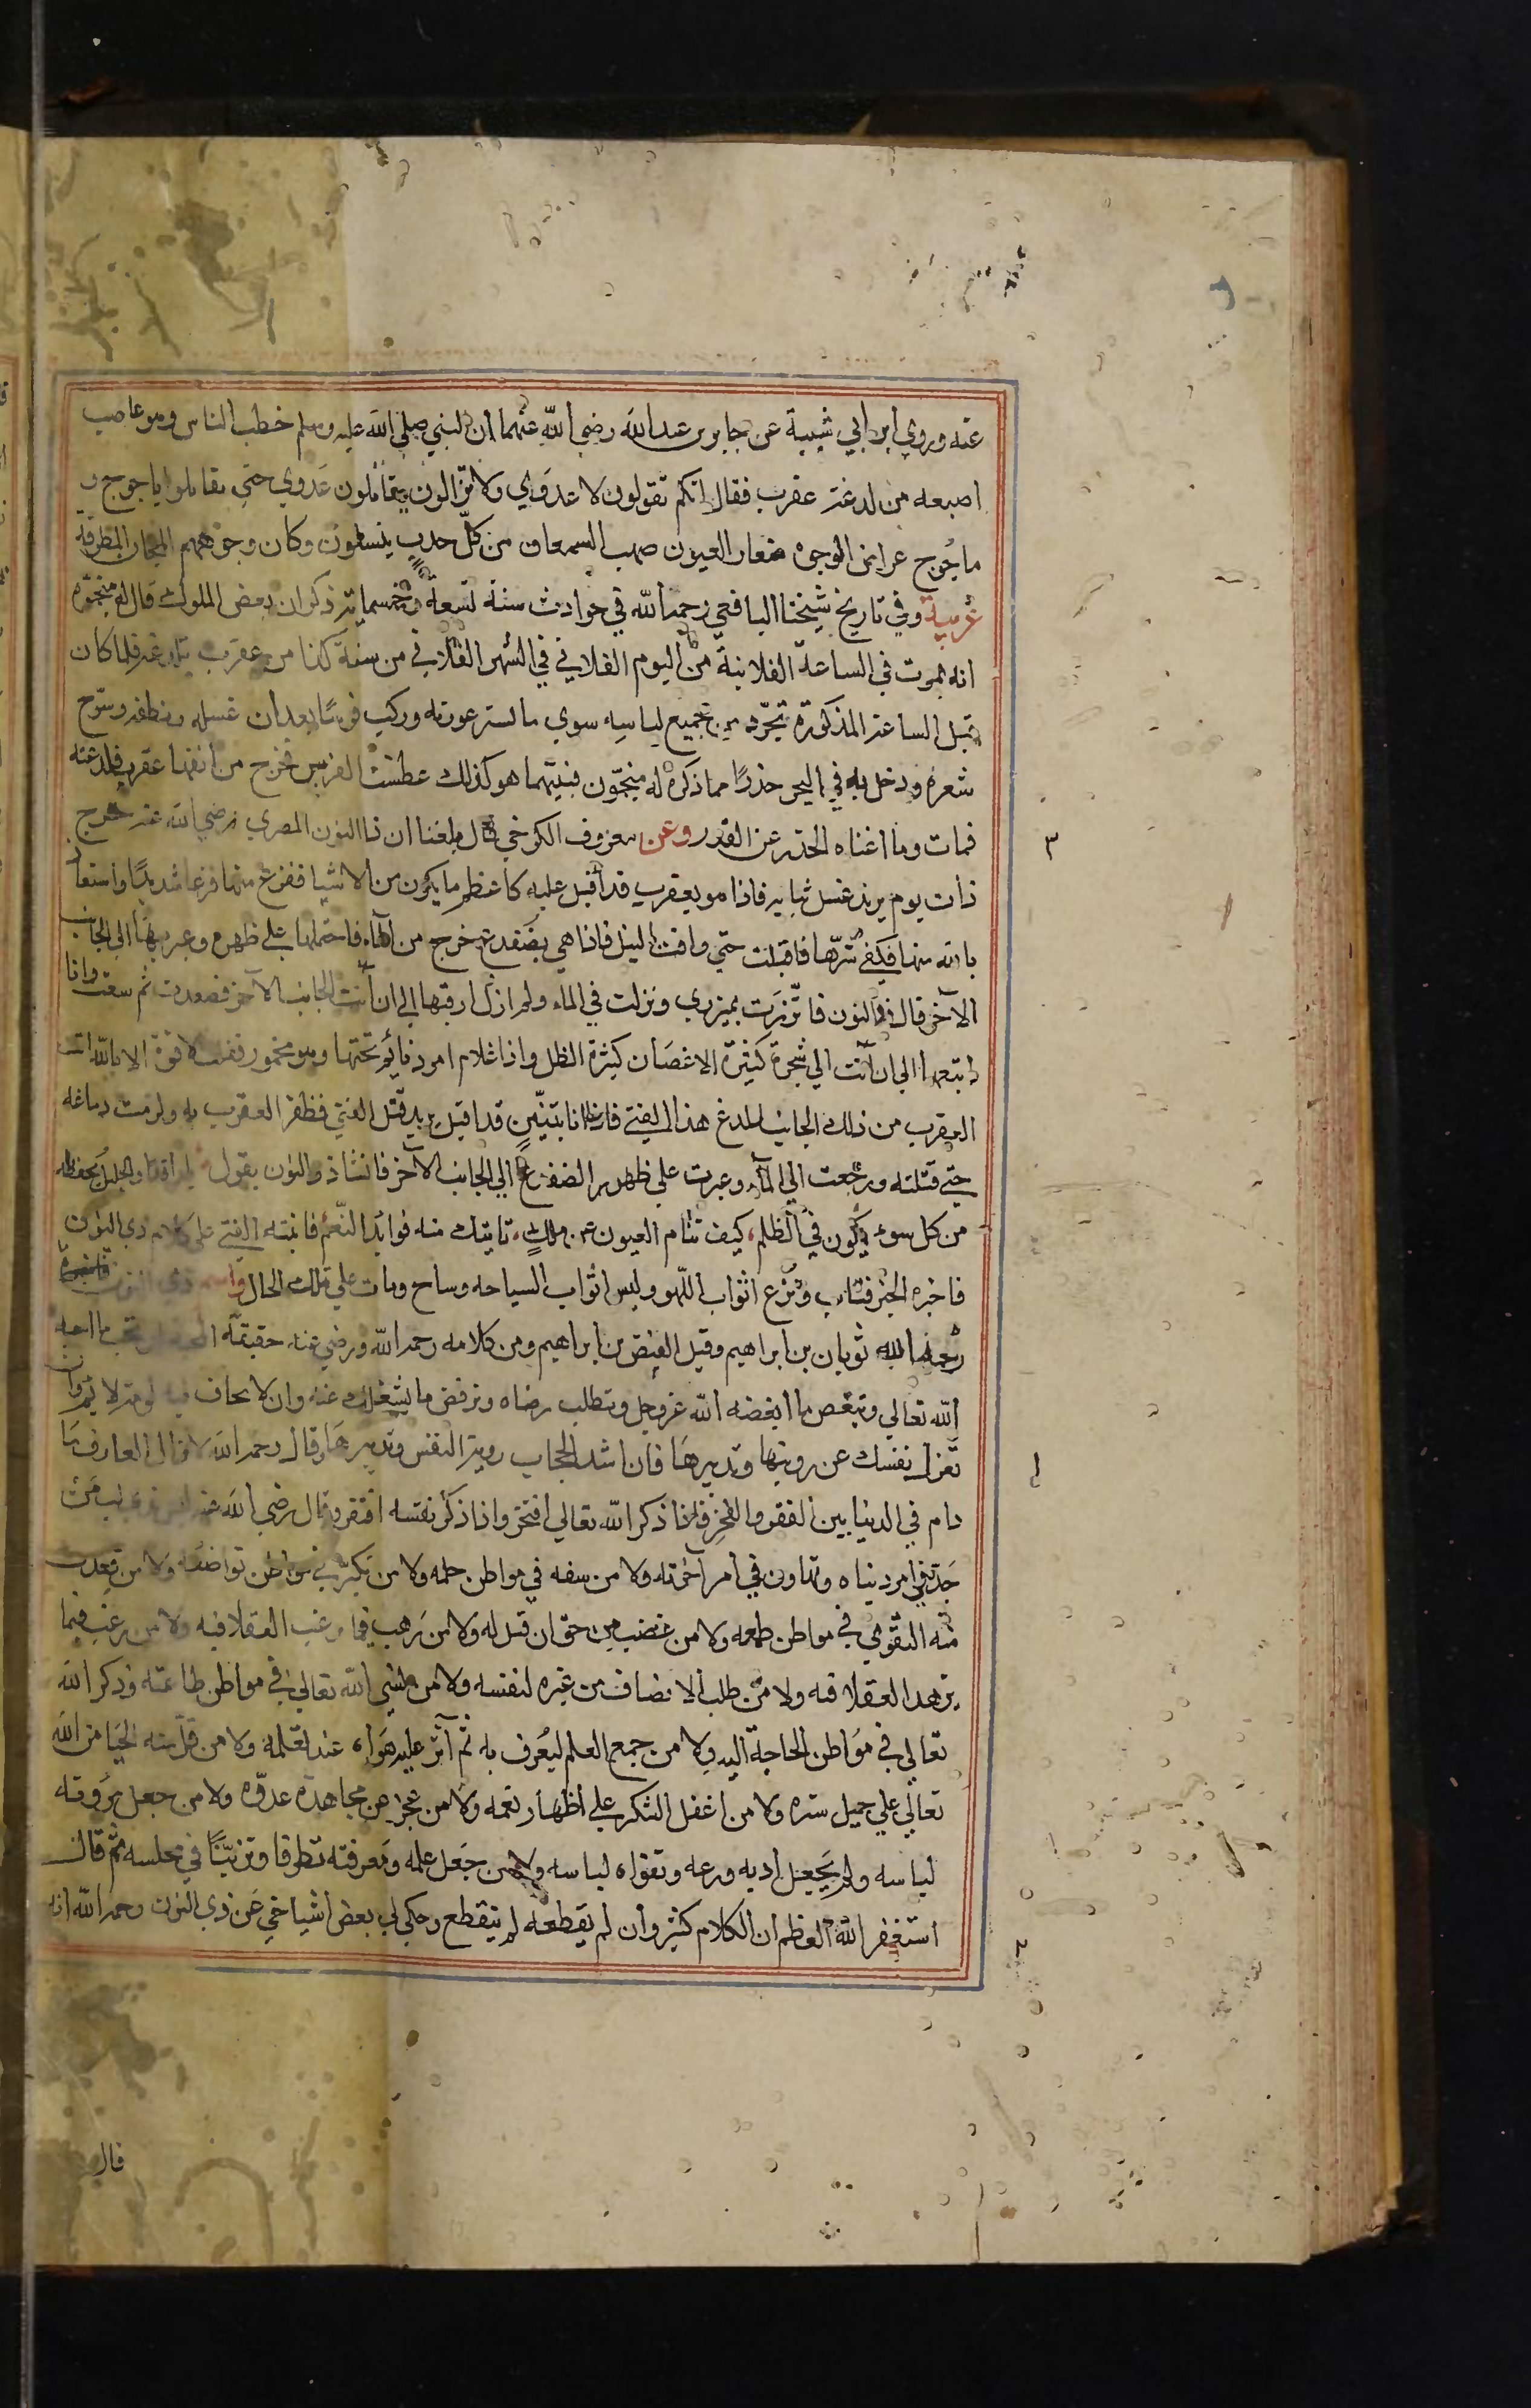 عنه وروي ابن ابي شيبة عن جابر بن عبد الله رضي الله عنهما ان النبي صلي الله عليه وسلم خطب الناس وهو عاصب
اصبعه من لدغة عقرب فقال انكم تقولون لا عدوي ولا تزالون تقاتلون عدوي حتي تقاتلوا ياجوج و
ماجوج عراض الوجوه صغار العيون صهب من كل حدب ينسلون وكان وجوههم المجان المطرقة
غريبة وفي تاريخ شيخنا اليافعي رحمه الله في حوادث سنة تسعة وخمسماية ذكر ان بعض الملوك قال له منجموه
انه يموت في الساعة الفلانية من اليوم الفلاني في الشهر الفلاني من سنة كذا من عقرب تلدغه فلما كان
قبل الساعة المذكورة تجرد من جميع لباسه سوي ما لستر عورته وركب فرسا بعد ان غسله ونظفه وسرح
شعره ودخل به في البحر حذرا مما ذكره له منجمون فبينما هو كذلك عطست الفرس فخرج من انفها عقرب فلدغته
فمات وما اغناه الحذر عن القدر وعن معروف الكرخي قال بلغنا ان ذا النون المصري رضي الله عنه خرج
ذات يوم يريد غسل ثيابه فاذا هو بعقرب قد اقبل عليه كاعظم ما يكون من الاشيا ففزع منها فزعا شديدا واستعاذ
بالله منها فكفي شرها فاقبلت حتي وافت النيل فاذا هي بضفدع خرج من الماء فاحتملها علي ظهره وعبر بها الي الجانب
الآخر قال ذو النون فاتزرت بميزري ونزلت في الماء ولم ازل ارقبها الي ان اتت الجانب الآخر فصعدت ثم سعت وانا
اتبعها الي ان اتت الي شجرة كثيرة الاغصان كثيرة الظل واذا غلام امرد نائم تحتها وهو مخمور فقلت لا قوة الا بالله اتت
العقرب من ذلك الجانب للدغ هذا الفتي فاذا انا بتنين قد اقبل يريد قتل الفتي فظفر العقرب به ولزمت دماغه
حتي قتلته ورجعت الي الماء وعبرت علي ظهر الضفدع الي الجانب الآخر فانشا ذو النون يقول يا راقدا والجليل يحفظه
من كل سوء يكون في الظلم، كيف تنام العيون عن ملك، تاتيك منه فوايد النعم فانتبه الفتي علي كلام ذي النون
فاخبره الخبر فتاب ونزع اثواب اللهو ولبس اثواب السياحه وساح ومات علي تلك الحال واسم ذي النون
رحمه الله ثوبان بن ابراهيم وقيل الفيض بن ابراهيم ومن كلامه رحمه الله ورضي عنه حقيقة المحبة ان تحب ما احبه
الله تعالي وتبغض ما ابغضه الله عز وجل وتطلب رضاه وترفض ما يشغلك عنه وان لا تخاف فيه لومة لائم وان
تعزل نفسك عن رويتها وتدبيرها فان اشد الحجاب روية النفس وتدبيرها وقال رحمه الله لا يزال العارف ما
دام في الدنيا بين الفقر والفخر فاذا ذكر الله تعالي افتخر واذا ذكر نفسه افتقر وقال رضي الله عنه ليس بذي لب من
جد في امر دنياه وتهاون في امر آخرته ولا من سفه في مواطن حلمه ولا من تكبر في مواطن تواضعه ولا من فقدت
منه التقوي في مواطن طمعه ولا من غضب من حق ان قيل له ولا من زهب فيما يرغب العقلا فيه ولا من رغب فيما
يزهد العقلا فيه ولا من طلب الانصاف من غيره لنفسه ولا من نسي الله تعالي في مواطن طاعته وذكر الله
تعالي في مواطن الحاجة اليه ولا من جمع العلم ليعرف به ثم آثر عليه هواه عند تعلمه ولا من قل منه الحيا من الله
تعالي علي جميل ستره ولا من اغفل الشكر علي اظهار نعمه ولا من عجز عن مجاهدة عدوه ولا من جعل مروته
لباسه ولم يجعل ادبه ورعه وتقواه لباسه ولا من جعل علمه ومعرفته تظرفا وتزينا في مجلسه ثم قال
استغفر الله العظيم ان الكلام كثير وان لم تقطعه لم ينقطع وحكي لي بعض اشياخي عن ذي النون رحمه الله انه
قال